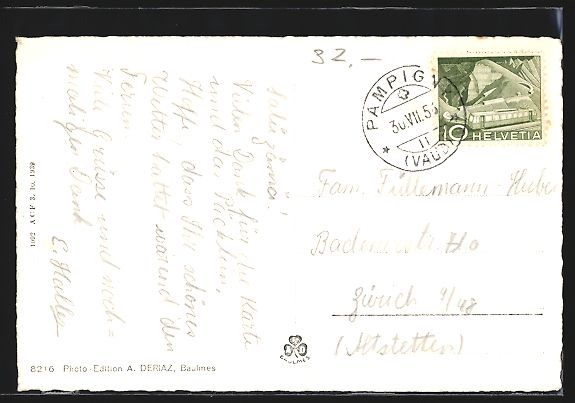 32.—
PAMPIGNY
30.VII.5
11
(VAUD)
10 HELVETIA
Salü zämä!
Vielen Dank für die Karte
und das Päcklein,
Hoffe dass Ihr schönes
Wetter hattet wärend den
Ferien.
Viele Grüsse und noch=
mals den Dank
E. Haller
Fam. Füllemann-Huber
Badenerstr.
Zürich 9/48
(Altstetten)
1092 A C F 3. 10. 1939
BAULMES
8216 Photo-Edition A. DERIAZ, Baulmes